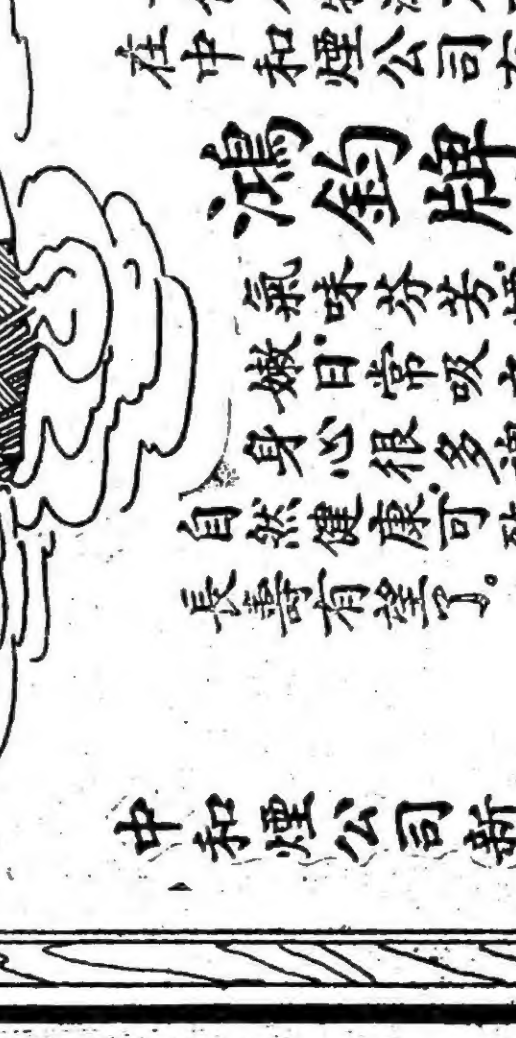 在中和煙公司
鴻鈞牌
氣味芬芳
嫩日常吸
身心很多
自然健康可
長壽有望了。
中和煙公司新